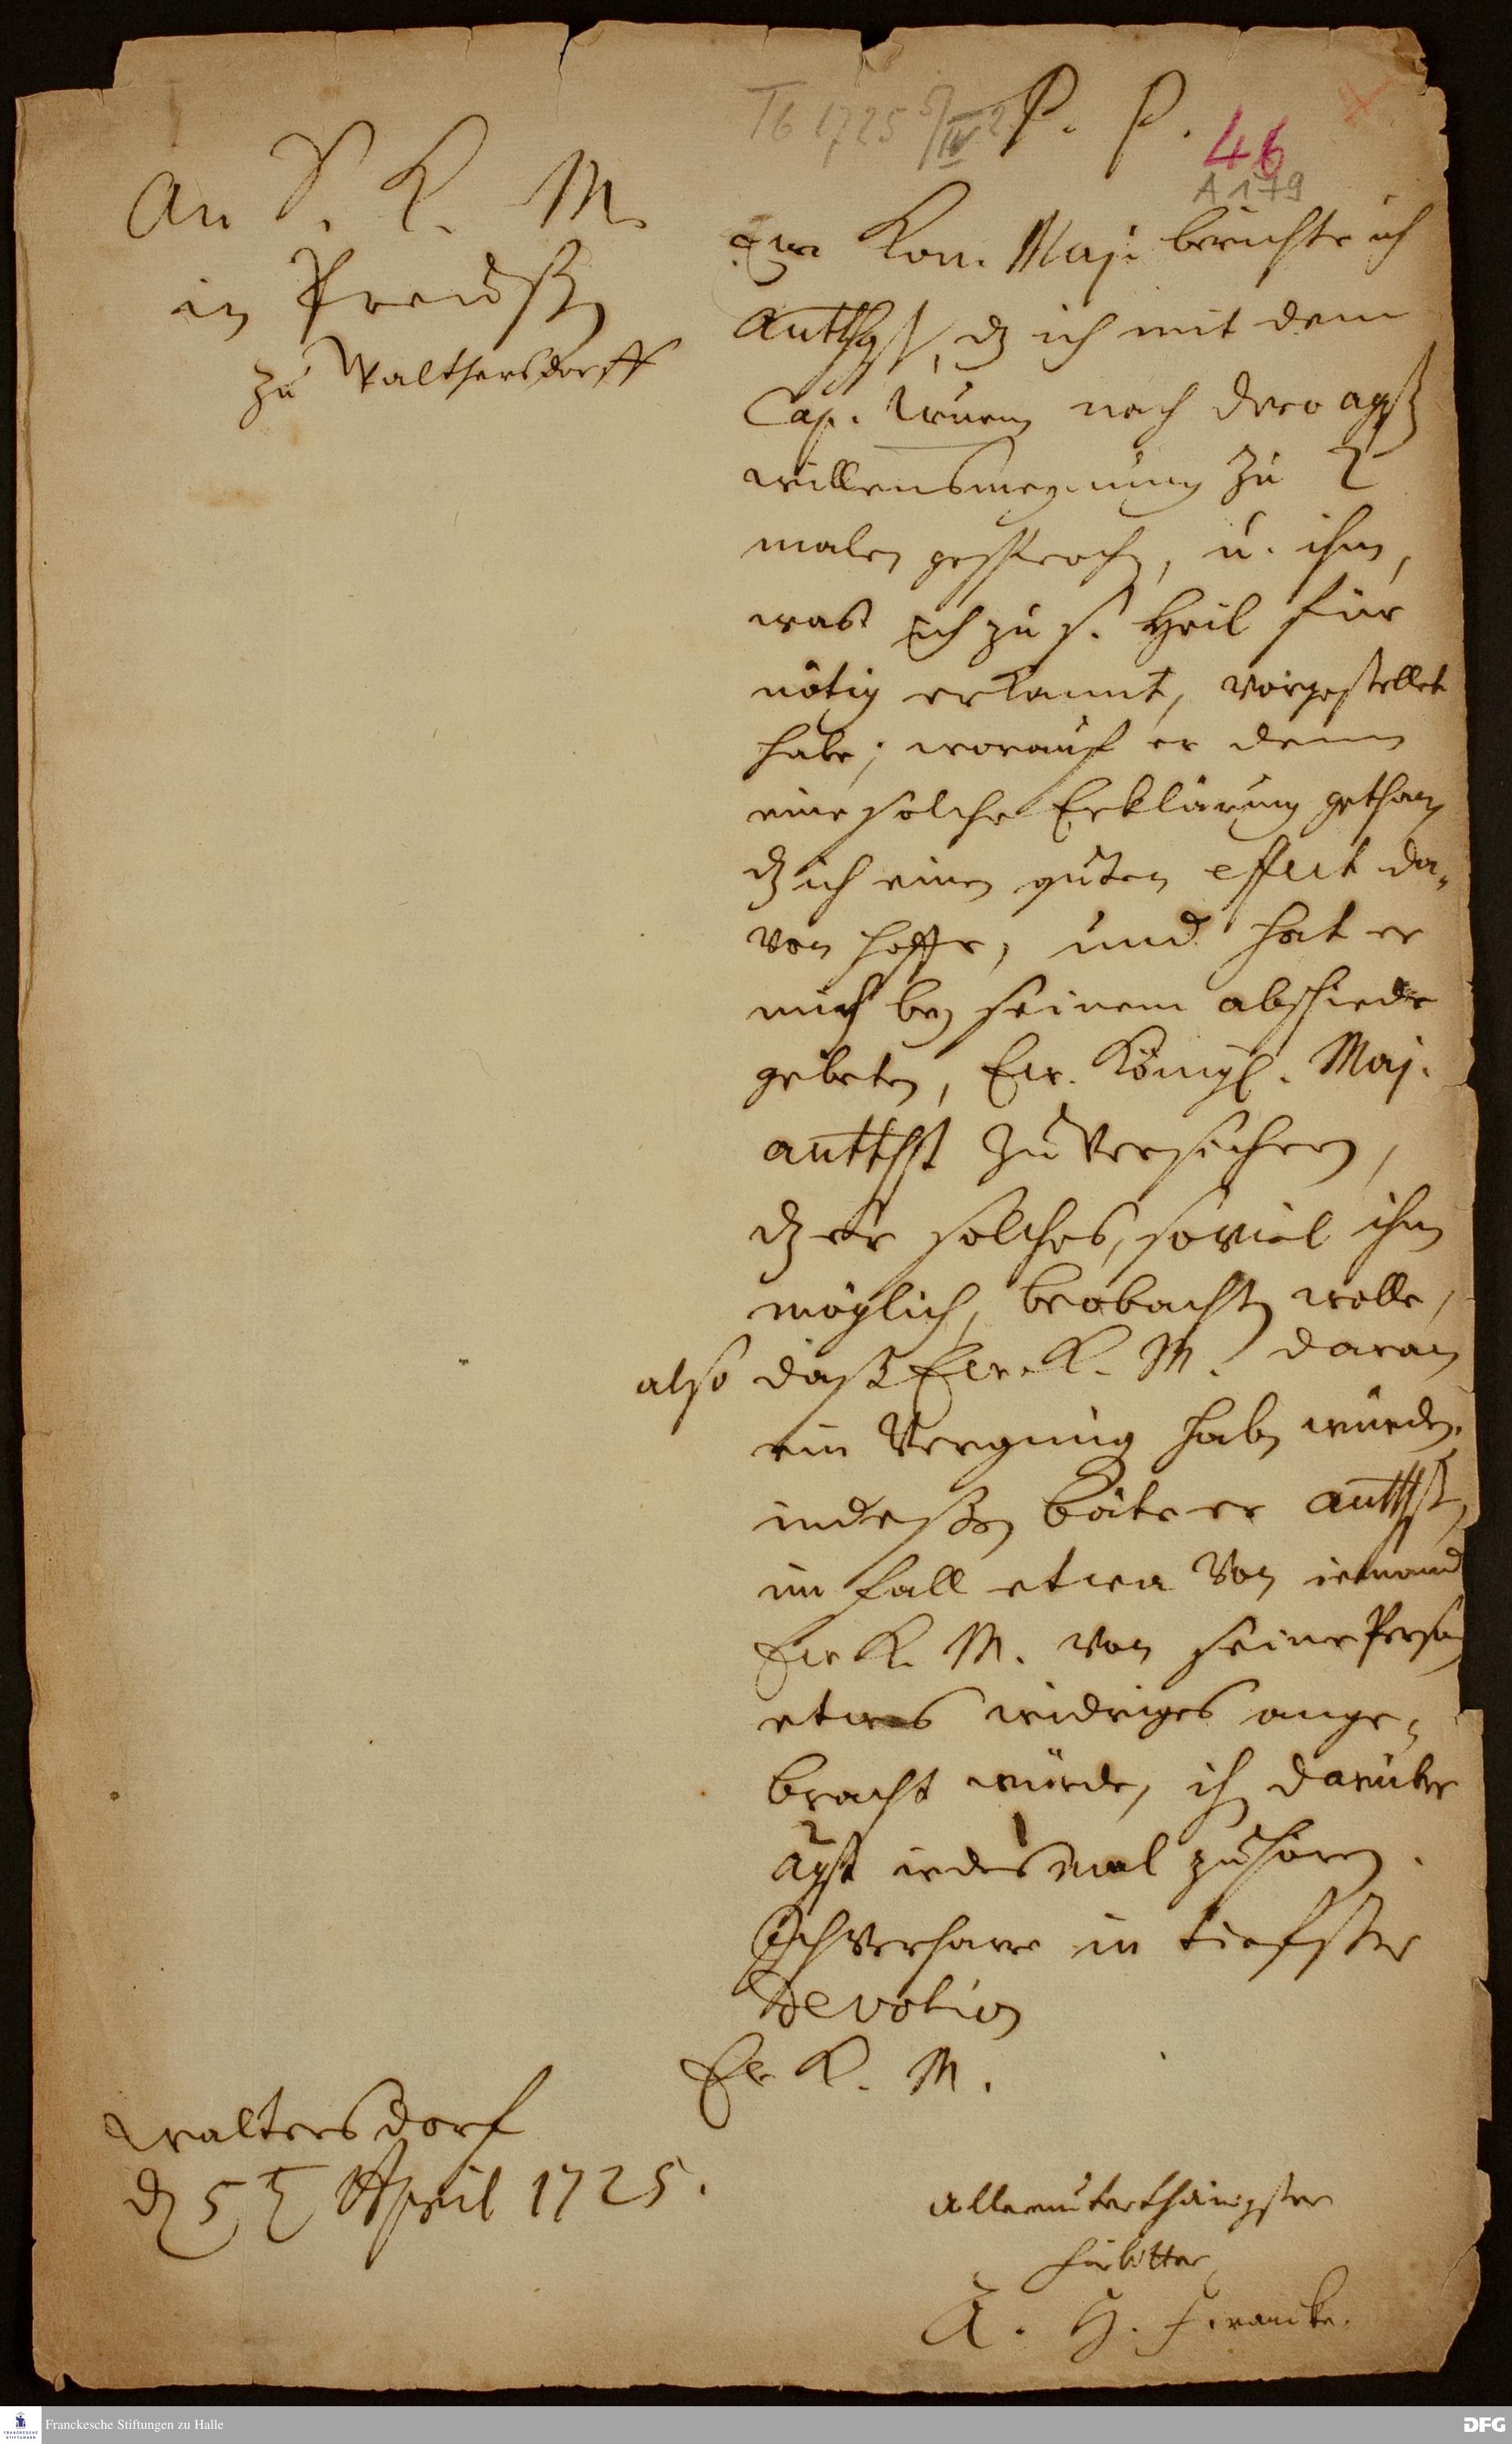 Tb 1725 5/IV 2
P. P.
46
A 179
An S. K. M.
in Preußen
zu Walthersdorff
Ew. Kön. Maj. berichte ich
unterthgst, dz ich mit dem
Cap. nach dero agst
willensmeynung zu 2
malen gesprochen, u. ihm,
was ich zu s. Heil für
nötig erkannt, vorgestellet
habe; worauf er denn
eine solche Erklärung gethan
dz ich einen guten effect da-
von hoffe, und hat er
mich bey seinem abschiede
gebeten, Ew. Königl. Maj.
untthst zu versichern,
dz er solches, soviel ihm
möglich, beobachten wolle,
also daß Ew. K. M. daran
ein Vergnüg haben würden.
indeßen bäte er untthst,
im fall etwa von iemand
Ew K. M. von seiner Person
etwas widriges ange-
bracht würde, ihn darüber
agst iedesmal zu hören.
Ich verharre in tiefster
Devotion
Ew K. M.
Waltersdorf
d 5t April 1725.
allerunterthänigster
fürbitter
A. H. Francke.
Franckesche Stiftungen zu Halle
DFG